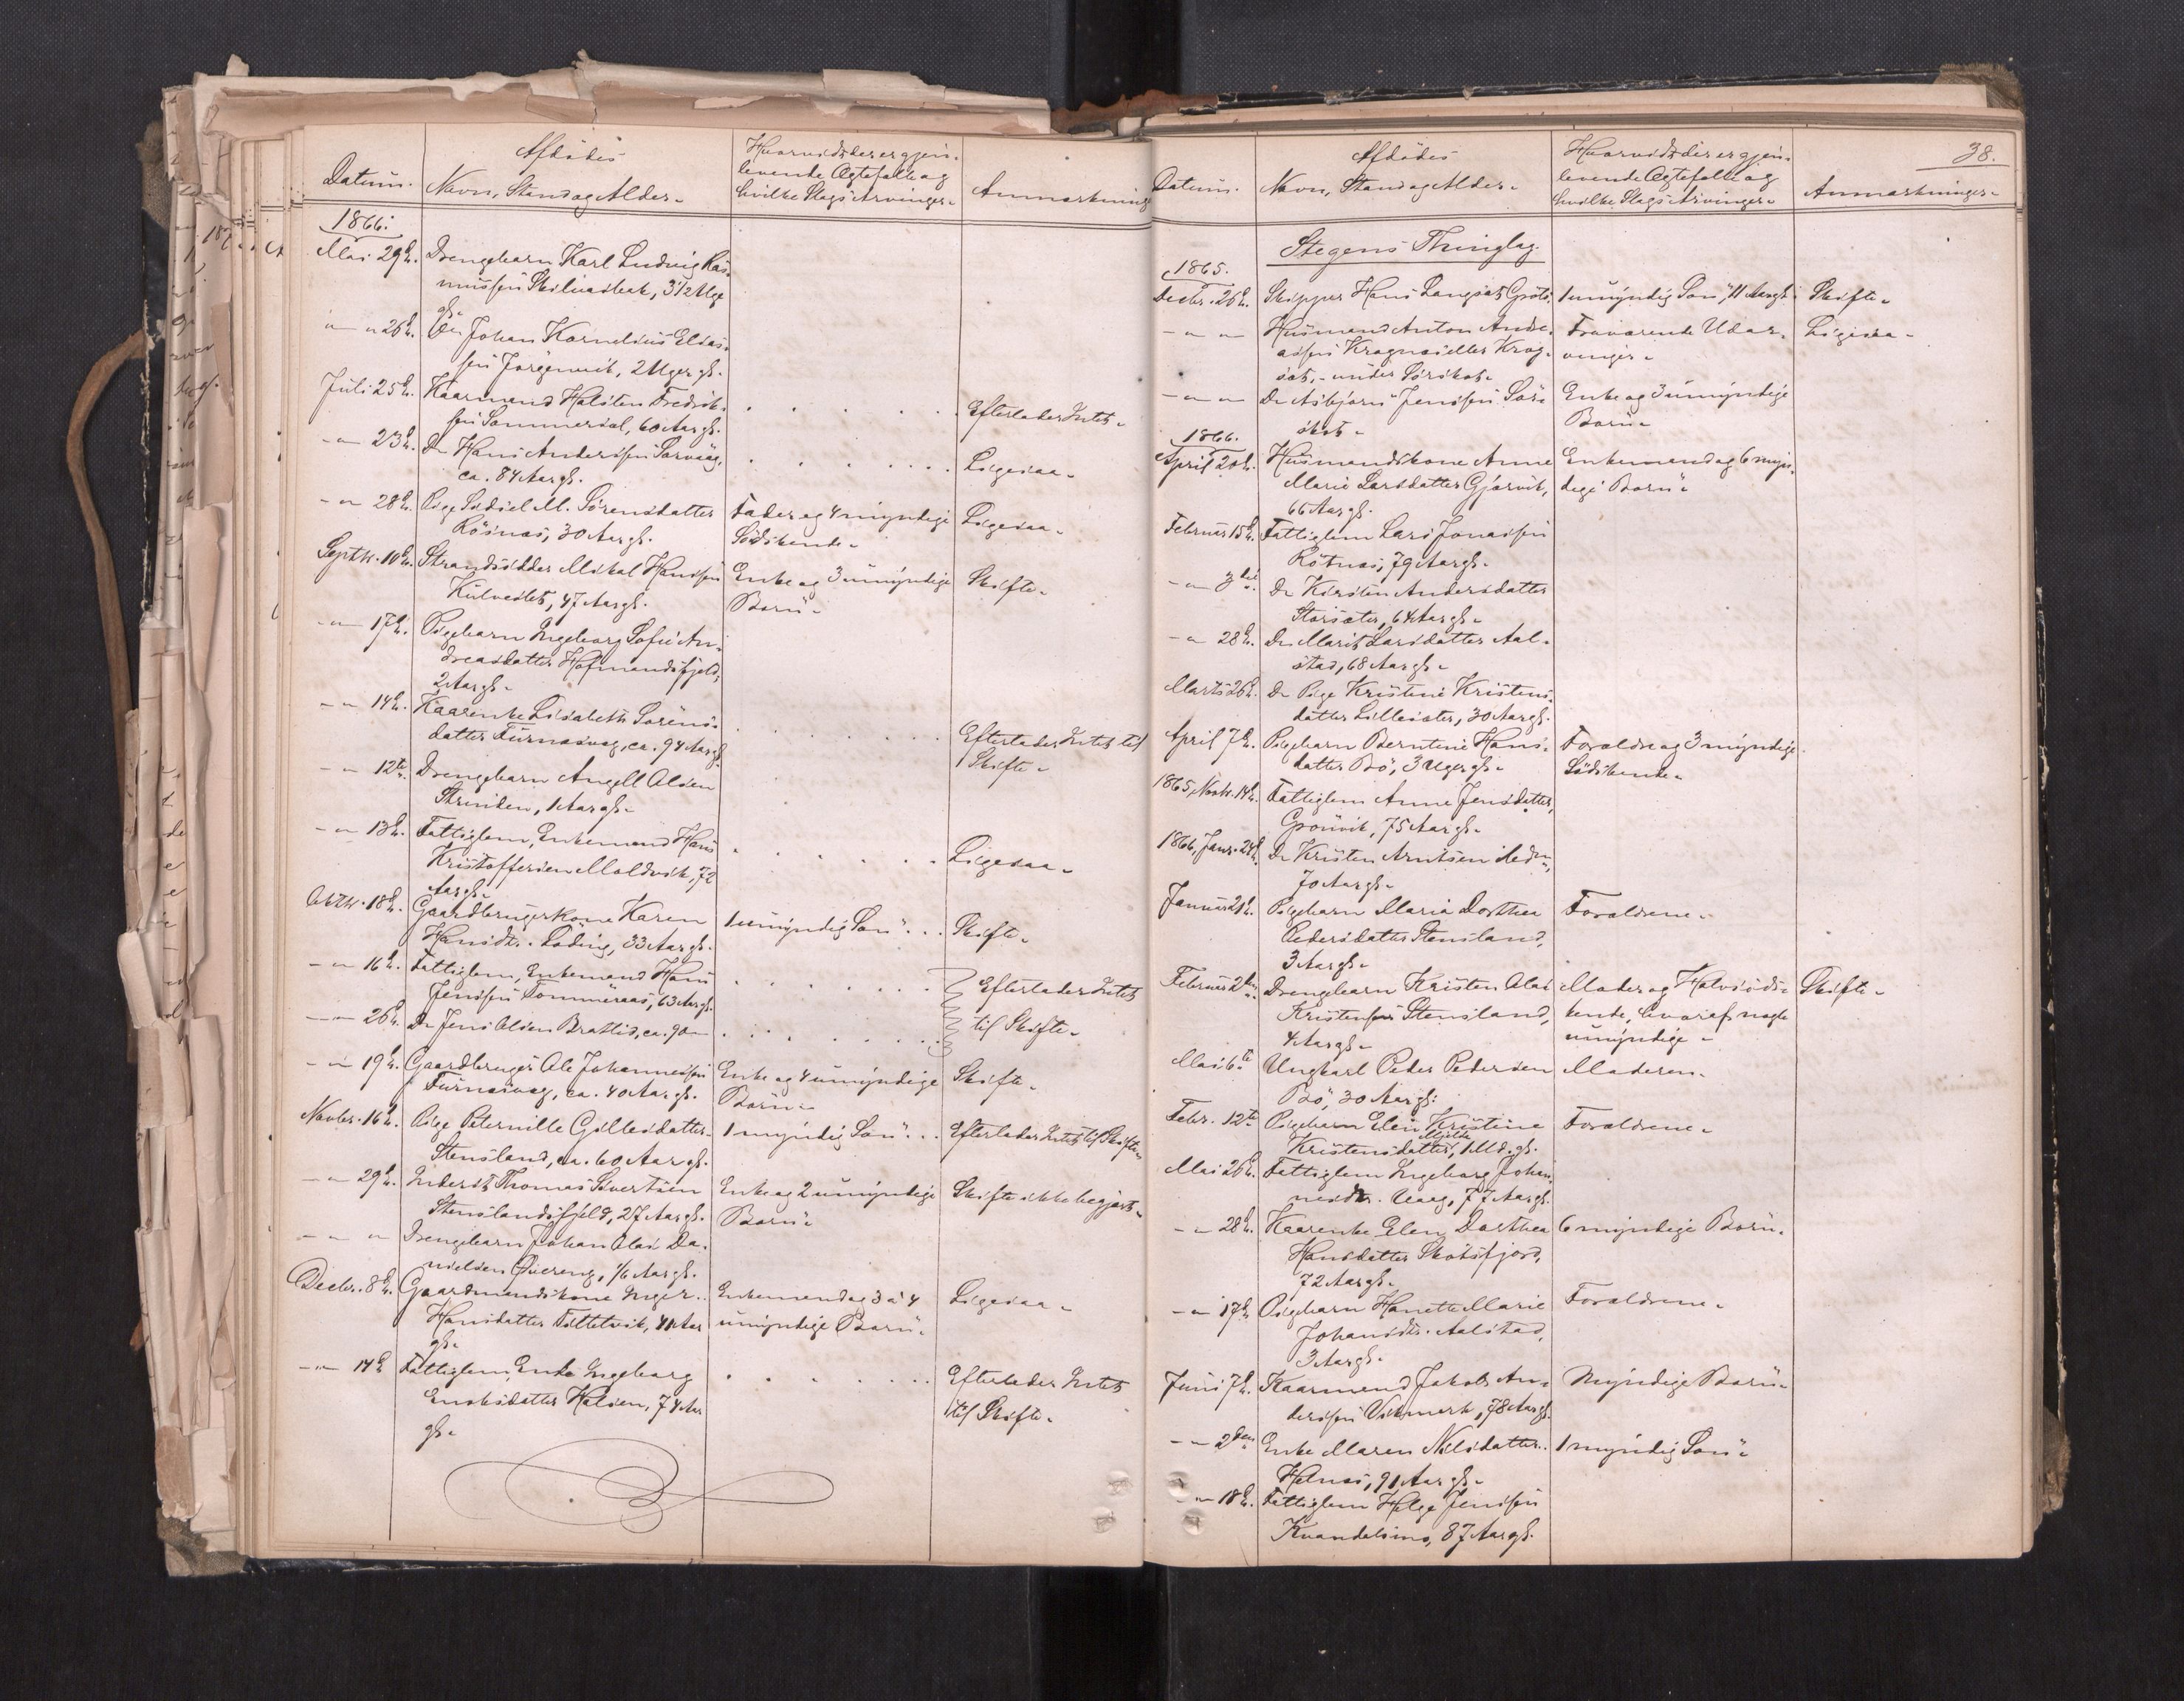 Datum.
Afdødes
Navn, Stand og Alder.
Hvorvidt der er gjen-
levende Ægtefælle og
hvilke Slags Arvinger.
Anmærkning
1866.
Mai 29d.
Drengebarn Karl Ludvig Ras-
mussen Skilvasbak, 3 1/2 Uge
gl.
" " 26d.
Do Johan Kornelius Elias-
sen Jørgenvik, 2 Uger gl.
Juli 25d.
Kaarmand Halsten Fredrik-
sen Sommersel, 60 Aar gl.
Efterlader Intet.
- " - 23d.
Do Hans Anderssen Sørvaag,
ca. 84 Aar gl.
Ligesaa.
- " 28d.
Pige Sidsel M. Sørensdatter
Røsnæs, 30 Aar gl.
Fader og 4 myndige
Sødskende.
Ligesaa.
Septbr. 10d.
Strandsidder Mikal Hanssen
Kulvedlet, 47 Aar gl.
Enke og 3 umyndige
Børn.
Skifte.
- " - 17d.
Pigebarn Ingeborg Sofie An-
dreasdatter Hofmandsfjeld,
2 Aar gl.
- " 14d.
Kaarenke Lisabeth Sørens-
datter Furnæsvag, ca. 94 Aar gl.
Efterlader Intet til
Skifte.
- " 12te.
Drengebarn Angell Olsen
Strinden, 1 Aar gl.
- " 13d.
Fattiglem, Enkemand Hans
Kristoffersen Moldvik, 72
Aar gl.
Ligesaa.
Oktbr. 18d.
Gaardbrugerkone Karen
Hansdtr. Løding, 33 Aar gl.
1 umyndig Søn.
Skifte.
- " 16d.
Fattiglem, Enkemand Hans
Jenssen Tømmeraas, 63 Aar gl.
Efterlader Intet
til Skifte.
- " 26d.
Do Jens Olsen Brattlid, ca. 90 "
- " 19d.
Gaardbruger Ole Johannessen
Furnæsvag, ca. 40 Aar gl.
Enke og 4 umyndige
Børn.
Skifte.
Novbr. 16d.
Pige Peternille Gillesdatter
Stensland, ca. 60 Aar gl.
1 myndig Søn.
Efterlader Intet til Skifte.
- " 29d.
Inderst Thomas Sivertsen
Stenslandsfjeld, 27 Aar gl.
Enke og 2 umyndige
Børn.
Skifte ikke begjært.
- " "
Drengebarn Johan Olai Da-
nielsen 1/6 Aar gl.
Decbr. 8d.
Gaardmandskone Inger
Hansdatter Tilteltvik, 41 Aar
gl.
Enkemand og 3 á 4
umyndige Børn.
Ligesaa.
- " 14d.
Fattiglem Enke Ingeborg
Enoksdatter Halsen, 74 Aar
gl.
Efterlader Intet
til Skifte.
38.
Datum.
Afdødes
Navn, Stand og Alder.
Hvorvidt der er gjen-
levende Ægtefælle og
hvilke Slags Arvinger.
Anmærkninger.
Stegens Thinglag.
1865.
Decbr. 26d.
Skipper Hans Langsæt Grøtø
1 umyndig Søn, 11 Aar gl.
Skifte.
- " "
Husmand Anton Andre-
assen Kragnæs eller Krag-
sæt, under Sørskot.
Fraværende Udar-
vinger.
Ligesaa.
- " "
Do Asbjørn Jenssen Sør-
skot.
Enke og 3 umyndige
Børn.
1866.
April 20d.
Husmandskone Anne
Marie Larsdatter Gjærvik,
66 Aar gl.
Enkemand og 6 myn-
dige Børn.
Februar 15d.
Fattiglem Lars Jonassen
Røtnæs, 79 Aar gl.
- " 3die.
Do Kirsten Andersdatter
Storsæter, 64 Aar gl.
- " 28d.
Do Marit Larsdatter Aal-
stad, 68 Aar gl.
Marts 26d.
Do Pige Kristine Kristens-
datter Lillesæter, 30 Aar gl.
April 7d.
Pigebarn Berntine Hans-
datter Bø, 3 Uger gl.
Forældre og 3 myndige
Sødskende.
1865, Novbr. 14d.
Fattiglem Anne Jensdatter
Grønvik, 75 Aar gl.
1866, Janr. 24d.
Do Kristen Arntsen
70 Aar gl.
Januar 21d.
Pigebarn Maria Dorthea
Pedersdatter Stensland,
3 Aar gl.
Forældrene.
Februar 2den.
Drengebarn Kristen Olai
Kristensen Stensland,
4 Aar gl.
Moder og Halvsøds-
kende, hvoraf nogle
umyndige.
Skifte.
Mai 6te
Ungkarl Peder Pedersen
Bø, 30 Aar gl.
Moderen.
Febr. 12te
Pigebarn Elen Kristine
Kristensdatter Mjelde, 1 Md. gl.
Forældrene.
Mai 26d.
Fattiglem Ingeborg Johan-
nesdtr. Vaag, 77 Aar gl.
- " 28d.
Kaarenke Elen Dorthea
Hansdatter Skotsfjord,
72 Aar gl.
6 myndige Børn.
- " 17d
Pigebarn Hanette Marie
Johansdtr. Aalstad,
3 Aar gl.
Forældrene.
Juni 7d.
Kaarmand Jakob An-
derssen Vikmark, 78 Aar gl.
Myndige Børn.
- " 2den
Enke Maren Nilsdatter
Helnæs, 91 Aar gl.
1 myndig Søn.
- " 18d.
Fattiglem Helge Jenssen
Kvandalsmo, 87 Aar gl.